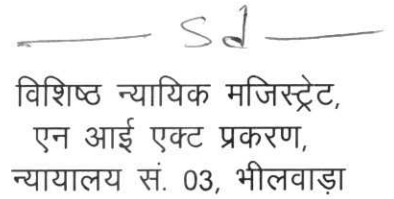 Sd
विशिष्ठ न्यायिक मजिस्ट्रेट,
एन आई एक्ट प्रकरण,
न्यायालय सं. 03, भीलवाड़ा